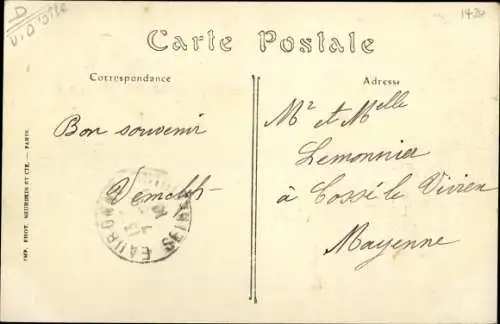 D
V. D'OISE
1420
Carte Postale
Correspondance
Adresse
Bon souvenir
Mr et Melle
Lemonnier
à Cossé le Vivien
Mayenne
IMP. PHOT. NEURDEIN ET CIE. — PARIS.